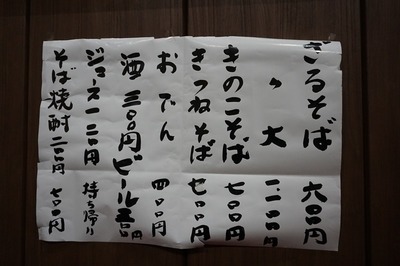 ざるそば 六〇〇円
〃 大
きのこそば 七〇〇円
きつねそば 七〇〇円
おでん 四〇〇円
酒 三〇〇円 ビール 五〇〇円
ジュース 一二〇円 持ち帰り
そば焼酎 二〇〇円 七〇〇円